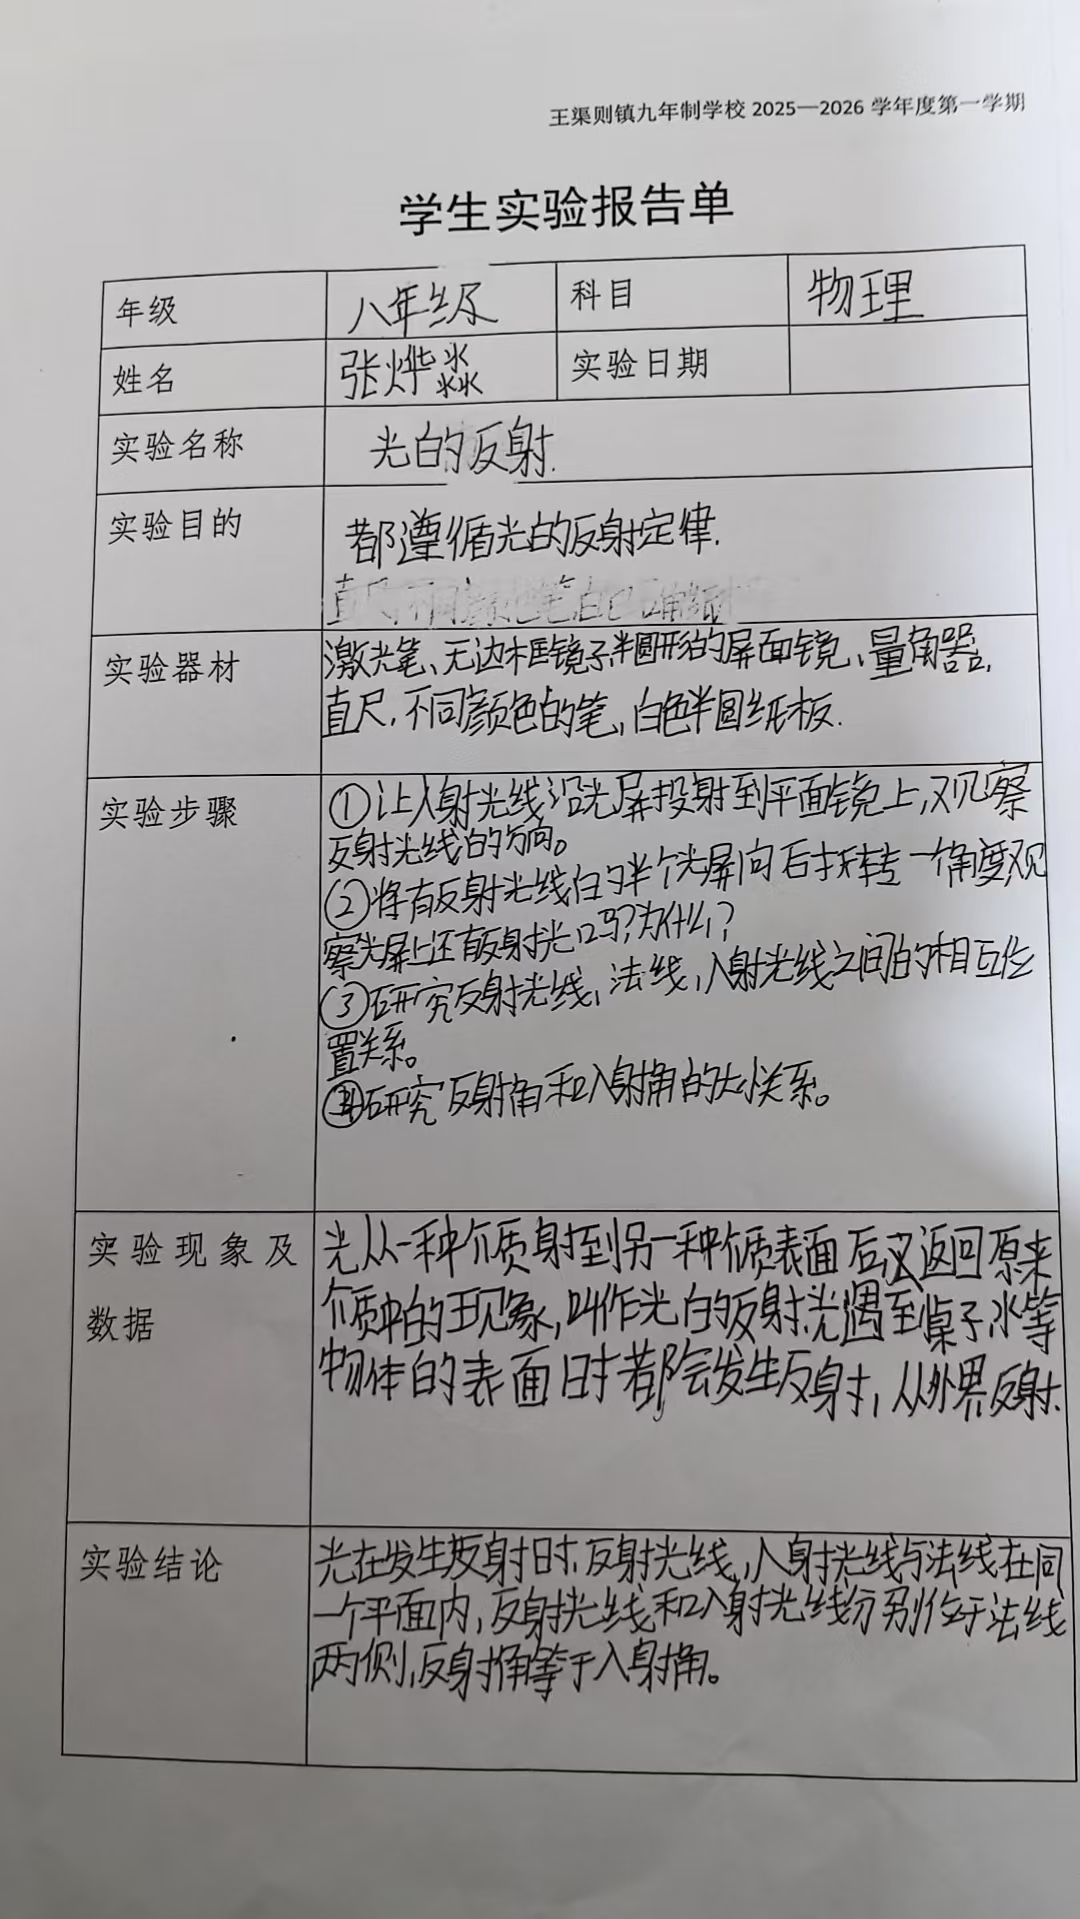 王渠则镇九年制学校 2025—2026 学年度第一学期
学生实验报告单
年级 八年级 科目 物理
姓名 张烨淼 实验日期
实验名称 光的反射.
实验目的 都遵循光的反射定律.
实验器材 激光笔、无边框镜子,半圆形的屏面镜、量角器,
直尺,不同颜色的笔,白色半圆纸板.
实验步骤 ①让入射光线沿光屏投射到平面镜上,观察
反射光线的方向。
②将有反射光线的半个光屏向后折转一个角度观
察光屏上还有反射光吗?为什么?
③研究反射光线,法线,入射光线之间的相互位
置关系。
④研究反射角和入射角的大小关系。
实验现象及 光从一种介质射到另一种介质表面后又返回原来
数据 介质中的现象,叫作光的反射.光遇到桌子,水等
物体的表面时都会发生反射,从外界反射.
实验结论 光在发生反射时,反射光线,入射光线与法线在同
一个平面内,反射光线和入射光线分别位于法线
两侧,反射角等于入射角。